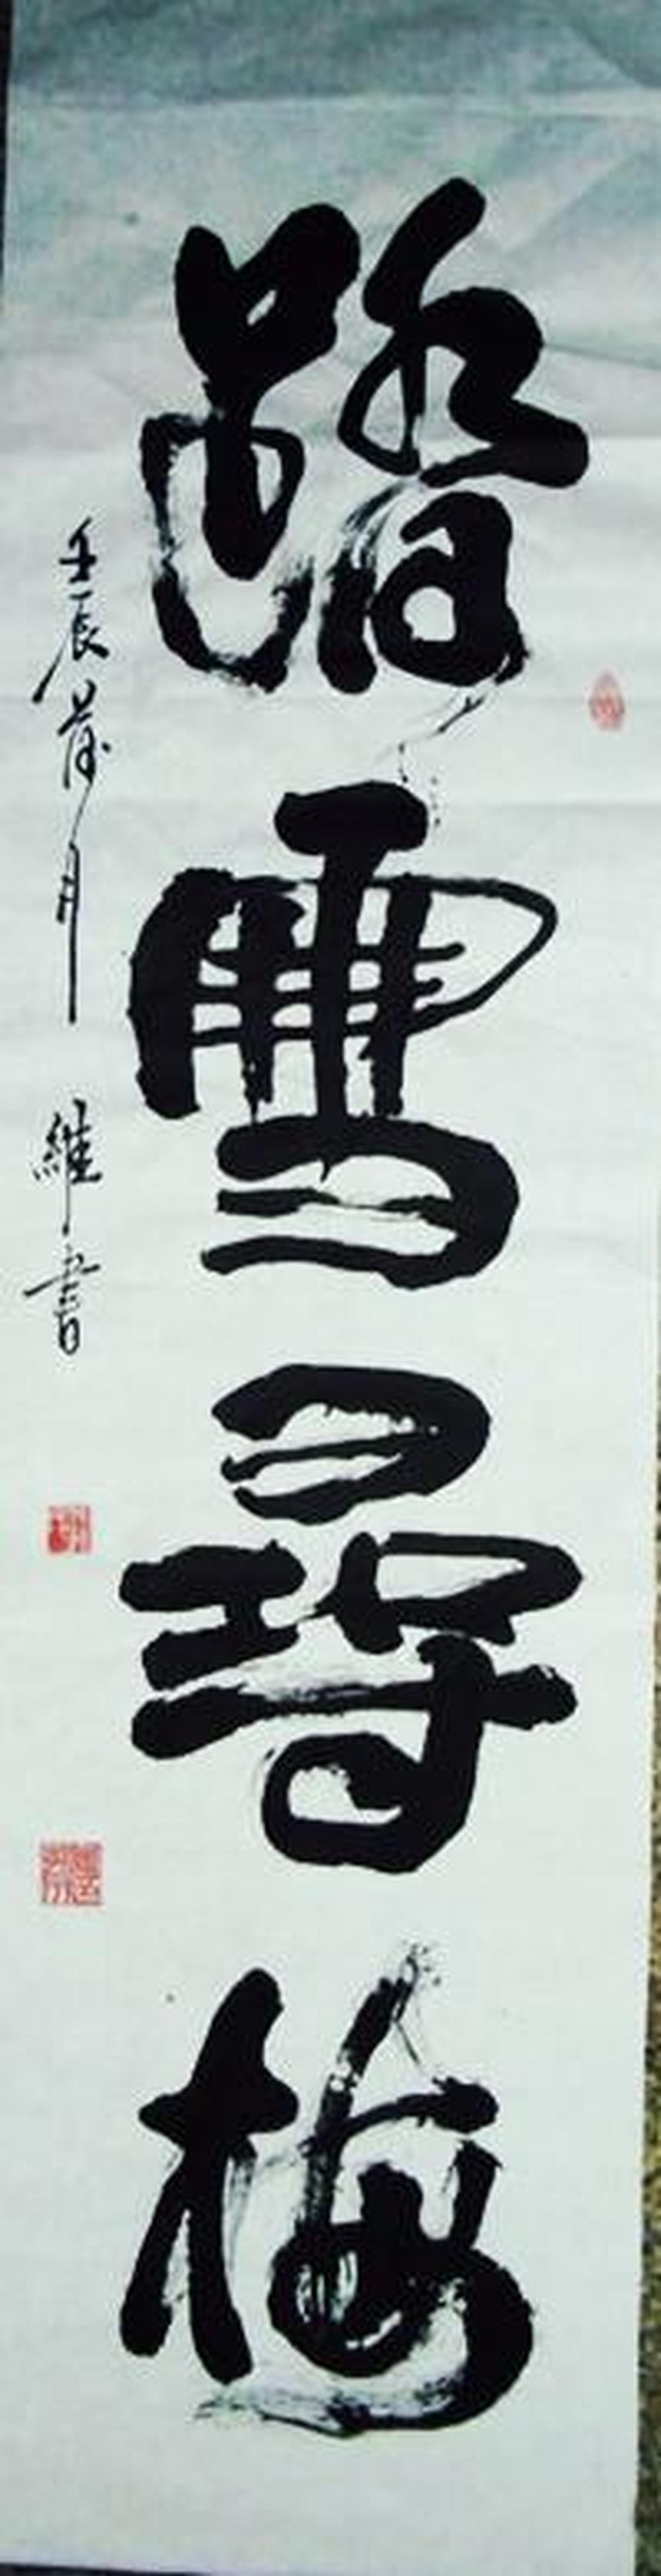 踏雪尋梅
壬辰荷月 維書